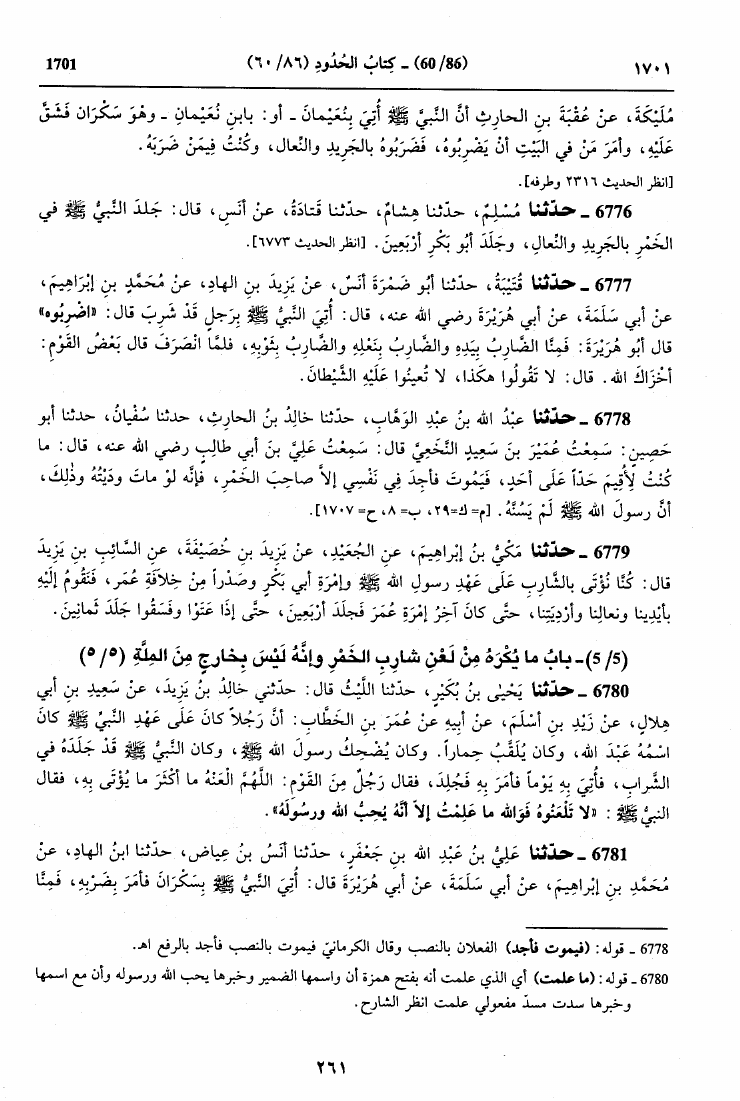 ١٧٠١ (60/86) ـ كِتابُ الحُدُودِ (٦٠/٨٦) 1701
مُلَيْكَةَ، عنْ عُقْبَةَ بنِ الحارِثِ أنَّ النَّبيَّ ﷺ أُتِيَ بِنُعَيْمانَ ـ أو: بابنِ نُعَيْمانِ ـ وهْوَ سَكْرَان فَشَقَّ
عَلَيْهِ، وأمَرَ مَنْ في البَيْتِ أنْ يَضْرِبُوهُ، فَضَرَبُوهُ بالجَرِيدِ والنِّعال، وكُنْتُ فِيمَنْ ضَرَبَهُ.
[انظر الحديث ٢٣١٦ وطرفه].
6776 ـ حدّثنا مُسْلِمٌ، حدّثنا هِشامٌ، حدّثنا قَتادَةُ، عنْ أنَسٍ، قال: جَلدَ النَّبيُّ ﷺ في
الخَمْرِ بالجَرِيدِ والنِّعالِ، وجَلَدَ أبُو بَكْرٍ أرْبَعِينَ. [انظر الحديث ٦٧٧٣].
6777 ـ حدّثنا قُتَيْبَةُ، حدّثنا أبُو ضَمْرَةَ أنَسٌ، عنْ يَزِيدَ بنِ الهادِ، عنْ مُحَمَّدِ بنِ إبْرَاهِيمَ،
عنْ أبي سَلَمَةَ، عنْ أبي هُرَيْرَةَ رضي الله عنه، قال: أُتِيَ النَّبيُّ ﷺ بِرَجلٍ قَدْ شَرِبَ قال: «اضْرِبُوه»
قال أبُو هُرَيْرَةَ: فَمِنَّا الضَّارِبُ بِيَدِهِ والضَّارِبُ بِنَعْلِهِ والضَّارِبُ بِثَوْبِهِ، فلمَّا انْصَرَفَ قال بَعْضُ القَوْمِ:
أخْزَاكَ الله. قال: لا تَقُولُوا هكَذا، لا تُعِينُوا عَلَيْهِ الشَّيْطانَ.
6778 ـ حدّثنا عبْدُ الله بنُ عبْدِ الوَهَّابِ، حدّثنا خالِدُ بنُ الحارِثِ، حدثنا سُفْيانُ، حدثنا أبو
حَصِينٍ: سَمِعْتُ عُمَيْرَ بنَ سَعِيدٍ النَّخَعِيَّ قال: سَمِعْتُ عَلِيَّ بنَ أبي طالِبٍ رضي الله عنه، قال: ما
كُنْتُ لِأُقِيمَ حَدّاً عَلَى أحَدٍ، فَيَمُوتَ فأجِدَ فِي نَفْسِي إلاَّ صاحِبَ الخَمْرِ، فإنَّه لوْ ماتَ ودَيْتُهُ وذٰلِكَ،
أنَّ رسولَ الله ﷺ لَمْ يَسُنَّهُ. [م= ك=٢٩، ب= ٨، ح= ١٧٠٧].
6779 ـ حدّثنا مَكِّيُّ بنُ إبْراهِيمَ، عنِ الجُعَيْدِ، عنْ يَزِيدَ بنِ خُصَيْفَةَ، عنِ السَّائِبِ بنِ يَزِيدَ
قال: كُنَّا نُؤْتَى بالشَّارِبِ عَلَى عَهْدِ رسولِ الله ﷺ وإمْرَةِ أبي بَكْرٍ وصَدْراً مِنْ خِلافَةِ عُمَر، فَنَقُومُ إلَيْهِ
بأيْدِينا ونعالِنا وأرْدِيَتِنا، حتَّى كانَ آخِرُ إمْرَةِ عُمَرَ فَجلَدَ أرْبَعِينَ، حتَّى إذَا عَتَوْا وفَسَقُوا جَلَدَ ثَمانِينَ.
(5/5)ـ بابُ ما يُكْرَهُ مِنْ لَعْنِ شارِبِ الخَمْرِ وإنَّهُ لَيْسَ بِخارِجٍ مِنَ المِلَّةِ (٥/٥)
6780 ـ حدّثنا يَحْيىٰ بنُ بُكَيْرٍ، حدّثنا اللَّيْثُ قال: حدّثني خالِدُ بنُ يَزِيدَ، عنْ سَعِيدِ بنِ أبي
هِلالٍ، عنْ زَيْدِ بنِ أسْلَمَ، عنْ أبِيهِ عنْ عُمَرَ بنِ الخَطَّابِ: أنَّ رَجُلاً كانَ عَلَى عَهْدِ النَّبيِّ ﷺ كانَ
اسْمُهُ عَبْدَ الله، وكان يُلَقَّبُ حِماراً. وكان يُضْحِكُ رسولَ الله ﷺ، وكان النَّبيُّ ﷺ قَدْ جَلَدَهُ في
الشَّرابِ، فأُتِيَ بِهِ يَوْماً فأمَرَ بِهِ فَجُلِدَ، فقال رَجُلٌ مِنَ القَوْمِ: اللَّهُمَّ الْعَنْهُ ما أكْثَرَ ما يُؤْتَى بِهِ، فقال
النبيُّ ﷺ: «لا تَلْعَنُوهُ فَوَالله ما عَلِمْتُ إلاَّ أنَّهُ يُحِبُّ الله ورسُولَهُ».
6781 ـ حدّثنا عَلِيُّ بنُ عَبْدِ الله بنِ جَعْفَرٍ، حدّثنا أنَسُ بنُ عِياضٍ، حدّثنا ابنُ الهادِ، عنْ
مُحَمَّدِ بنِ إبْرَاهِيمَ، عنْ أبي سَلَمَةَ، عنْ أبي هُرَيْرَةَ قال: أُتِيَ النَّبيُّ ﷺ بِسَكْرَانَ فأمَرَ بِضَرْبِهِ، فَمِنَّا
6778 ـ قوله: (فيموت فأجد) الفعلان بالنصب وقال الكرمانيّ فيموت بالنصب فأجد بالرفع اهـ.
6780 ـ قوله: (ما علمت) أي الذي علمت أنه بفتح همزة أن واسمها الضمير وخبرها يحب الله ورسوله وأن مع اسمها
وخبرها سدت مسدّ مفعولي علمت انظر الشارح.
٢٦١